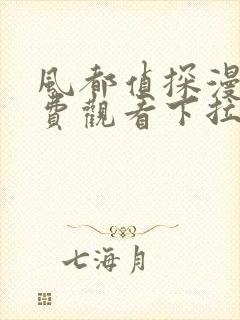 風都偵探漫
費觀看下拉
七海月